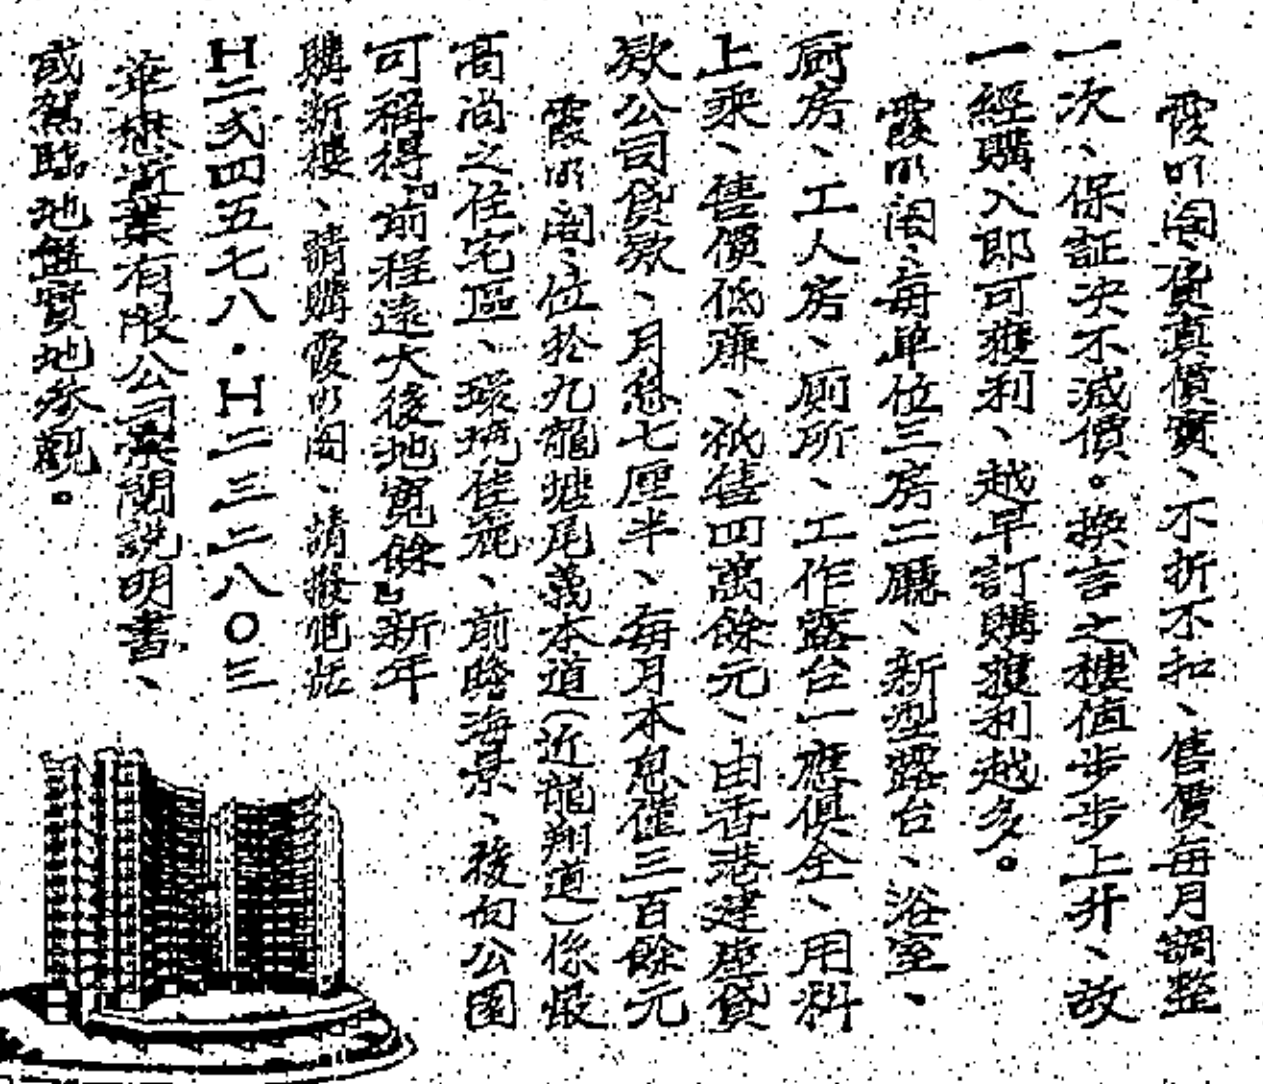 霞明閣、貨真價實、不折不扣、售價每月調整
一次、保証決不減價。換言之樓值步步上升、故
一經購入即可獲利、越早訂購獲利越多。
霞明閣、每單位三房二廳、新型露台、浴室、
廚房、工人房、厠所、工作露台一應俱全、用料
上乘、售價低廉、祇售四萬餘元、由香港建屋貸
欵公司貸欵、月息七厘半、每月本息僅三百餘元
霞明閣、位於九龍塘尾義本道(近龍翔道)係最
高尚之住宅區、環境佳麗、前臨海景、後向公園
可稱得『前程遠大後地寬餘』新年
購新樓、請購霞明閣、請撥電話
H二弍四五七八．H二三二八〇三
華懋置業有限公司索閱說明書、
或駕臨地盤實地參觀。